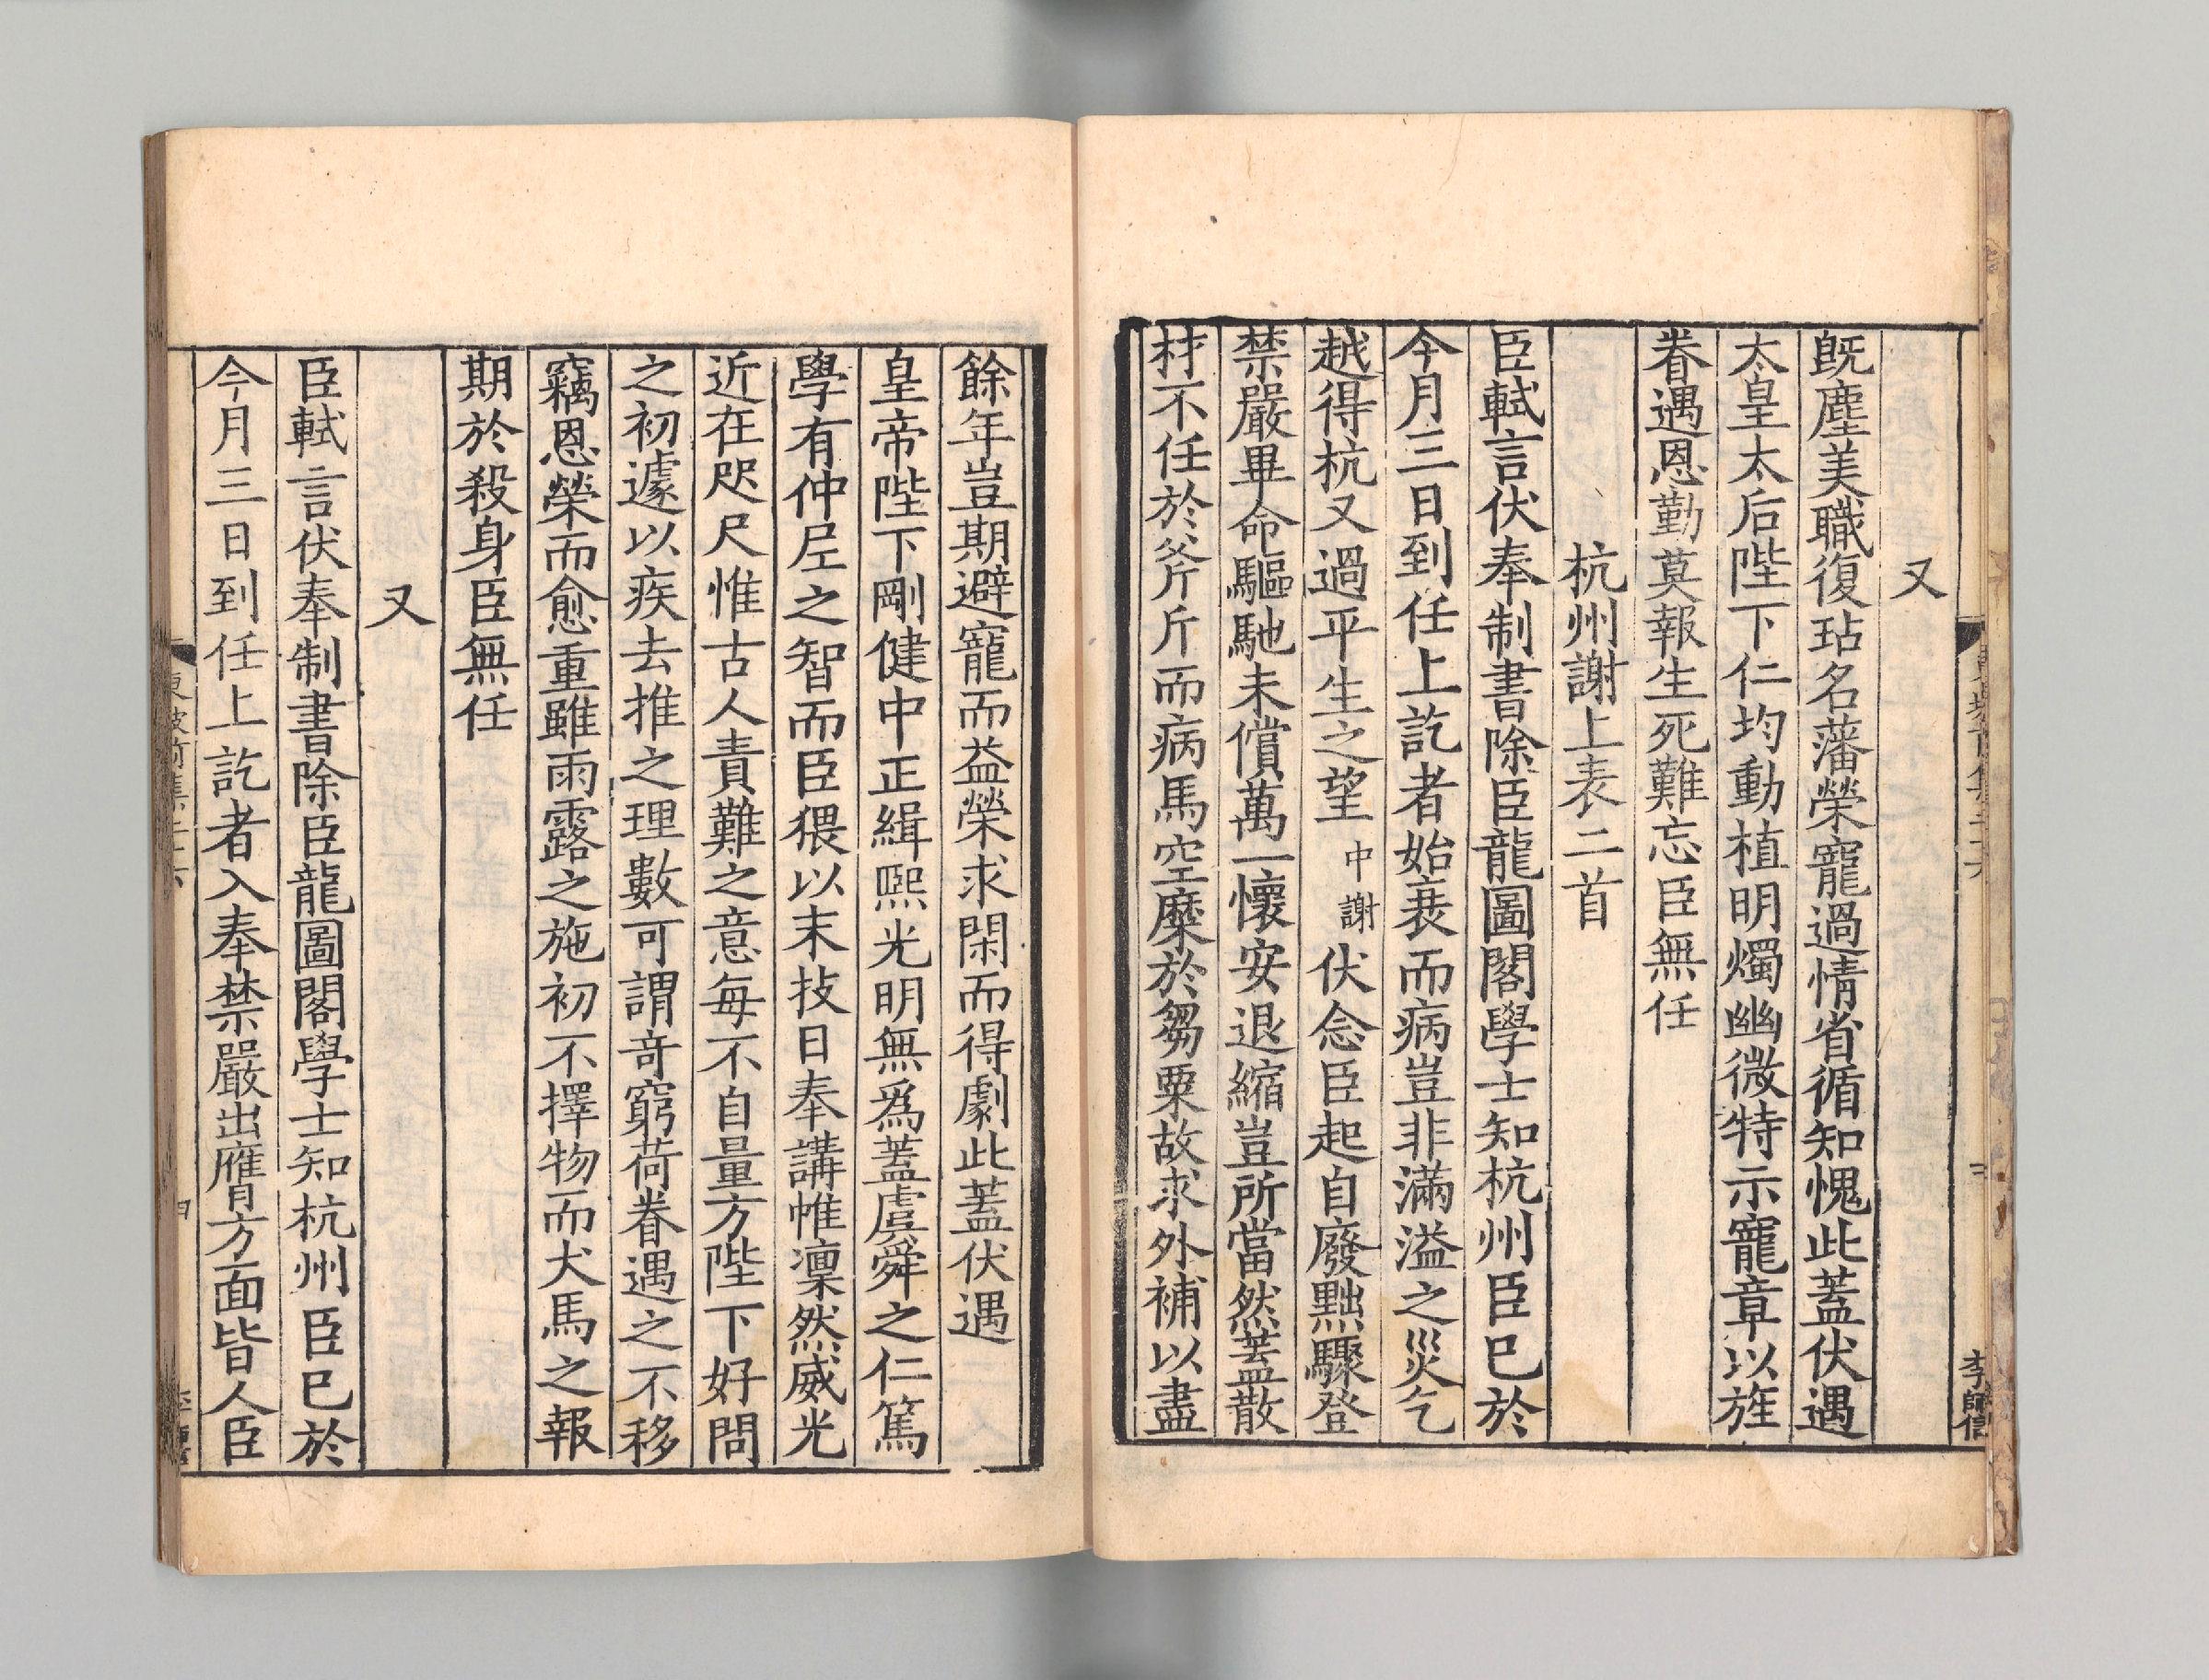 又
旣塵美職復玷名藩榮寵過情省循知愧此蓋伏遇
太皇太后陛下仁均動植明燭幽微特示寵章以旌
眷遇恩勤莫報生死難忘臣無任
杭州謝上表二首
臣軾言伏奉制書除臣龍圖閣學士知杭州臣巳於
今月三日到任上訖者始衰而病豈非滿溢之災乞
越得杭又過平生之望中謝伏念臣起自廢黜驟登
禁嚴畢命驅馳未償萬一懷安退縮豈所當然蓋散
材不任於斧斤而病馬空糜於芻粟故求外補以盡
李師信
餘年豈期避寵而益榮求閑而得劇此蓋伏遇
皇帝陛下剛健中正緝熈光明無爲蓋虞舜之仁篤
學有仲尼之智而臣猥以末技日奉講帷凜然威光
近在咫尺惟古人責難之意每不自量方陛下好問
之初遽以疾去推之理數可謂竒窮荷眷遇之不移
竊恩榮而愈重雖雨露之施初不擇物而犬馬之報
期於殺身臣無任
又
臣軾言伏奉制書除臣龍圖閣學士知杭州臣巳於
今月三日到任上訖者入奉禁嚴出膺方面皆人臣